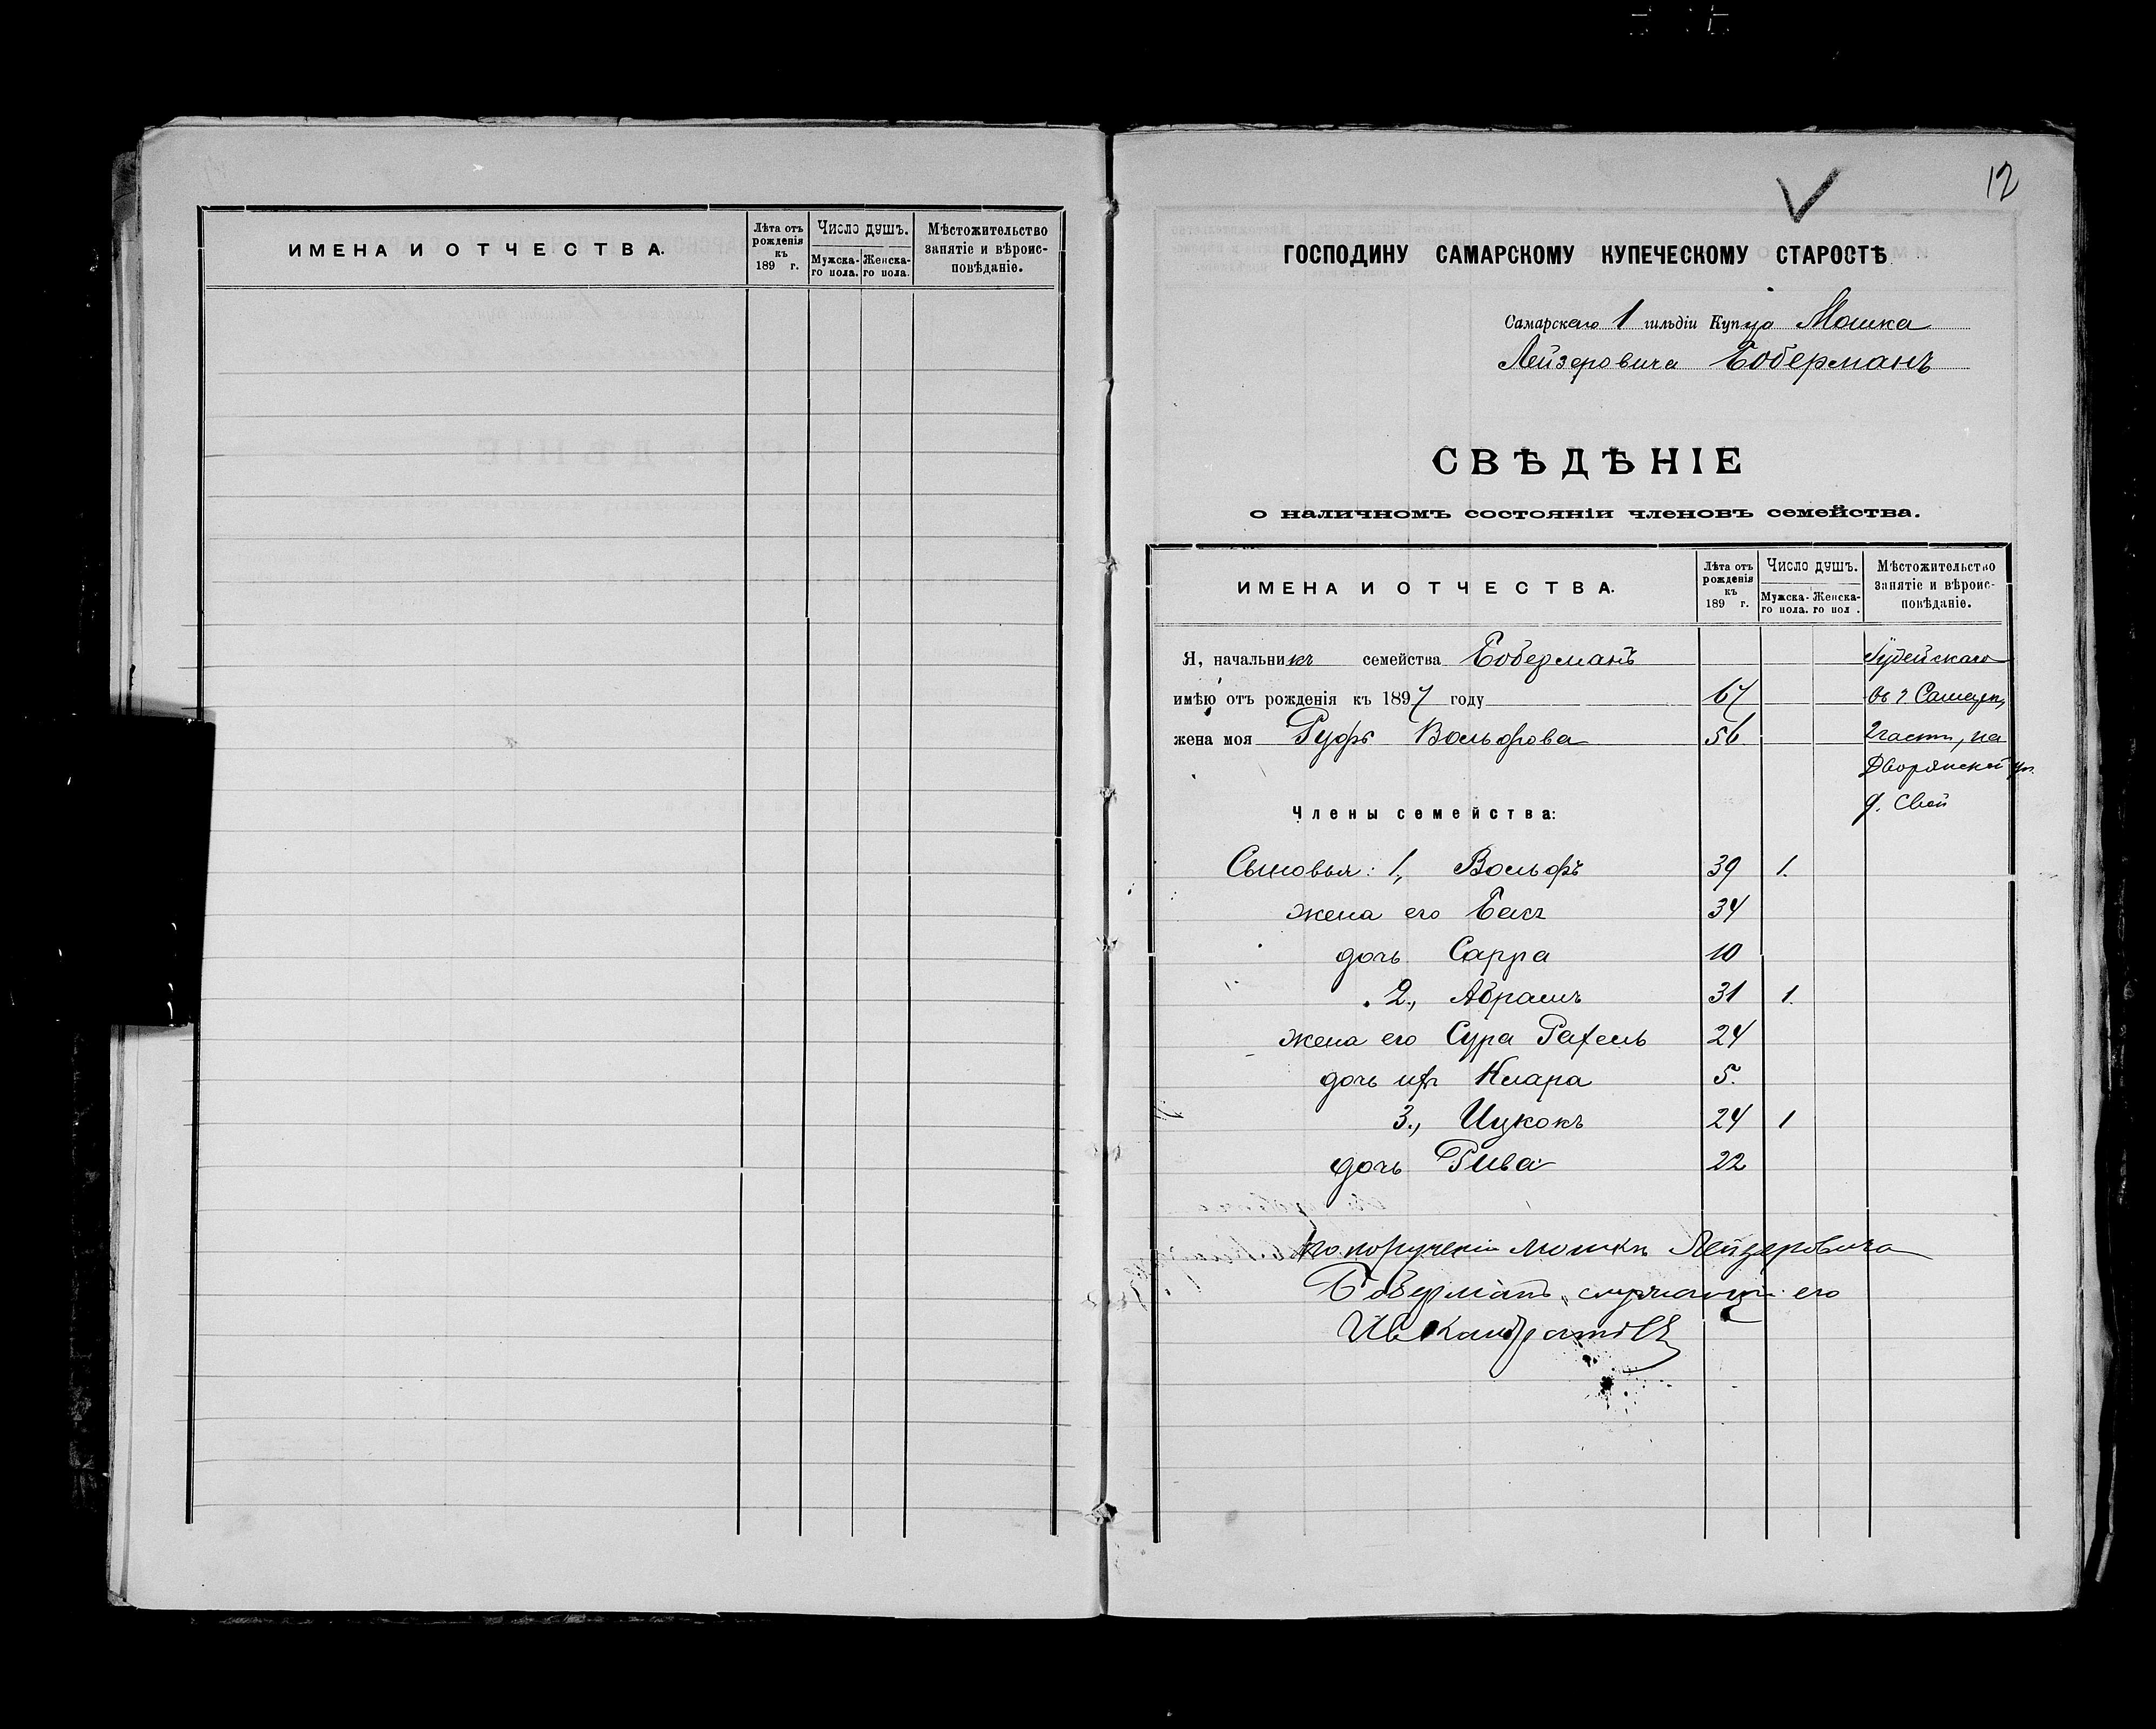 ИМЕНА И ОТЧЕСТВА.
Лѣта отъ рожденія къ 189 г.
Число душъ.
Мужска-го пола.
Женска-го пола.
Мѣстожительство занятіе и вѣроис-повѣданіе.
12
ГОСПОДИНУ САМАРСКОМУ КУПЕЧЕСКОМУ СТАРОСТѢ
Самарскаго 1 гильдіи Купца Мошка
Лейзеровича Боберманъ
СВѢДѢНІЕ
о наличномъ состояніи членовъ семейства.
ИМЕНА И ОТЧЕСТВА.
Лѣта отъ рожденія къ 189 г.
Число душъ.
Мужска-го пола.
Женска-го пол .
Мѣстожительство занятіе и вѣроис-повѣданіе.
Я, начальникъ семейства Боберманъ Іудейскаго
имѣю отъ рожденія къ 1897 году 67 въ г. Самарѣ,
жена моя Руфь Вольфова 56 2 части, на
Дворянской ул.
Члены семейства: д. свой
Сыновья: 1, Вольфъ 39 1.
жена его 34
дочь Сарра 10
2., Абрамъ 31 1.
жена его Сура Рахель 24
дочь ихъ Клара 5.
3., Ицкокъ 24 1
дочь Рива 22
по порученію Мошки Лейзеровича
Боберманъ, служащій его
Ив